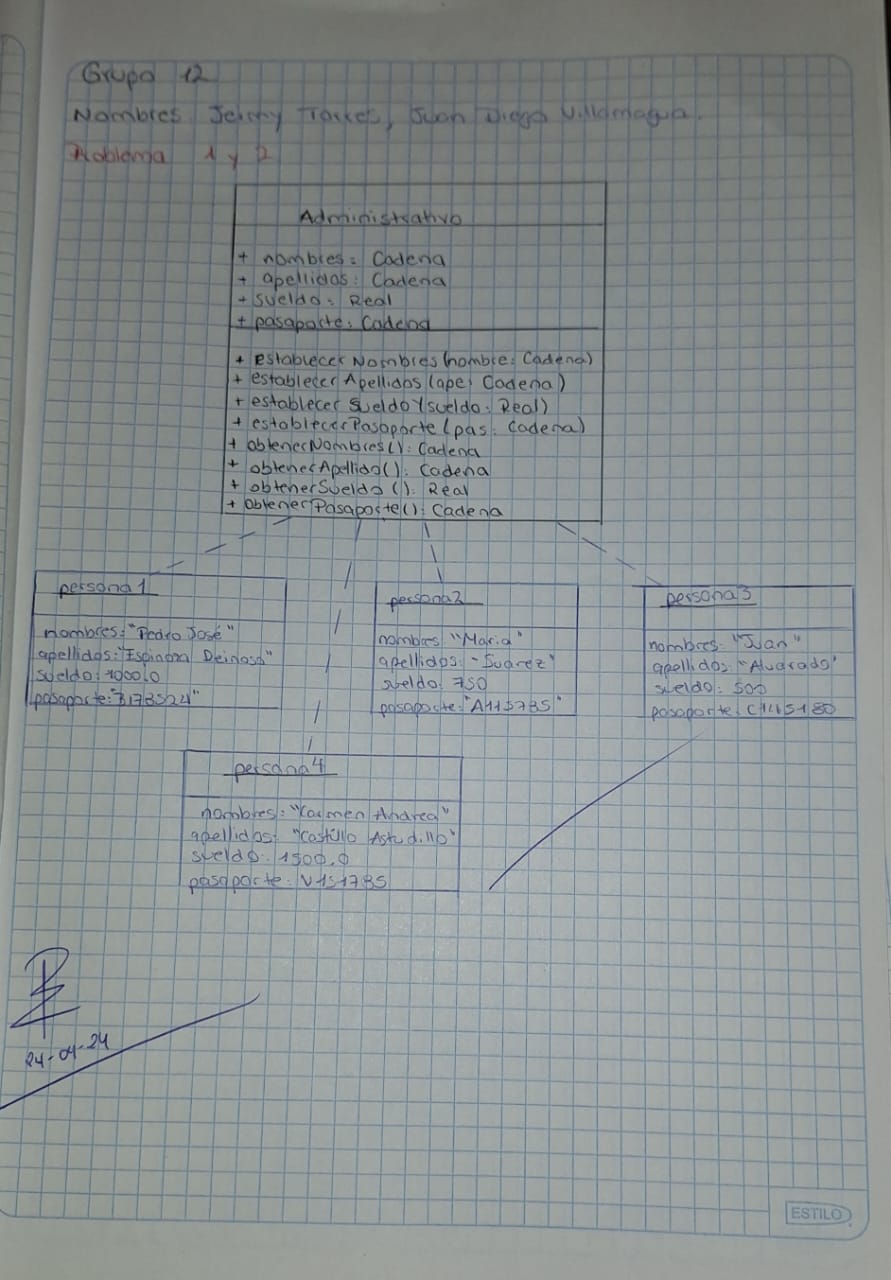 Grupo 12
Nombres Jeimy Torres, Juan Diego Villamagua.
Problema 1 y 2
Administrativo
+ nombres: Cadena
+ apellidos: Cadena
+ sueldo: Real
+ pasaporte: Cadena
+ establecer Nombres (nombre: Cadena)
+ establecer Apellidos (ape: Cadena)
+ establecer Sueldo (sueldo: Real)
+ establecerPasaporte (pas: Cadena)
+ obtenerNombres(): Cadena
+ obtenerApellido(): Cadena
+ obtenerSueldo (): Real
+ obtenerPasaporte(): Cadena
persona1
nombres: "Pedro José"
apellidos: "Espinoza Deinoso"
sueldo: 1000.0
pasaporte:
persona2
nombres "Maria"
apellidos: "Suarez"
sueldo: 750
pasaporte: "A113785"
persona3
nombres: "Juan"
apellidos: "Alvarado"
sueldo: 500
pasaporte:
persona4
nombres: "Carmen Andrea"
apellidos: "Castillo Astudillo"
sueldo: 1500.0
pasaporte: V151785
24-04-24
ESTILO